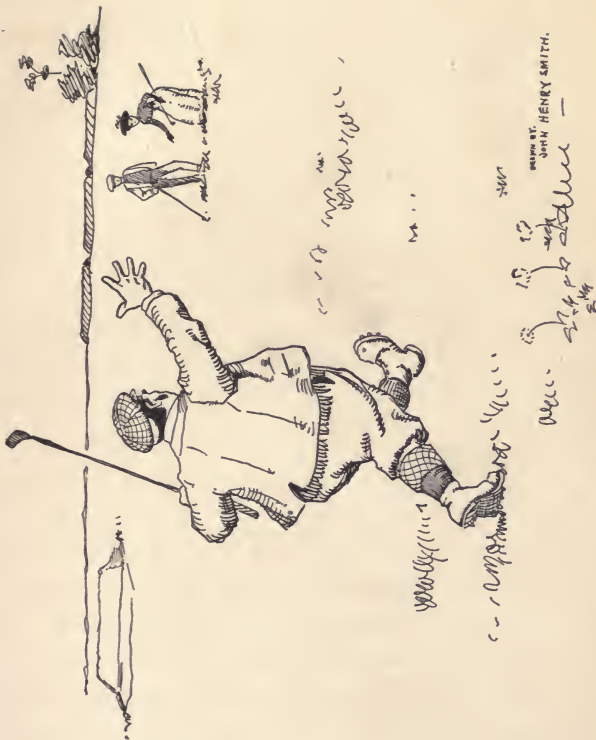 DRAWN BY.
JOHN HENRY SMITH.